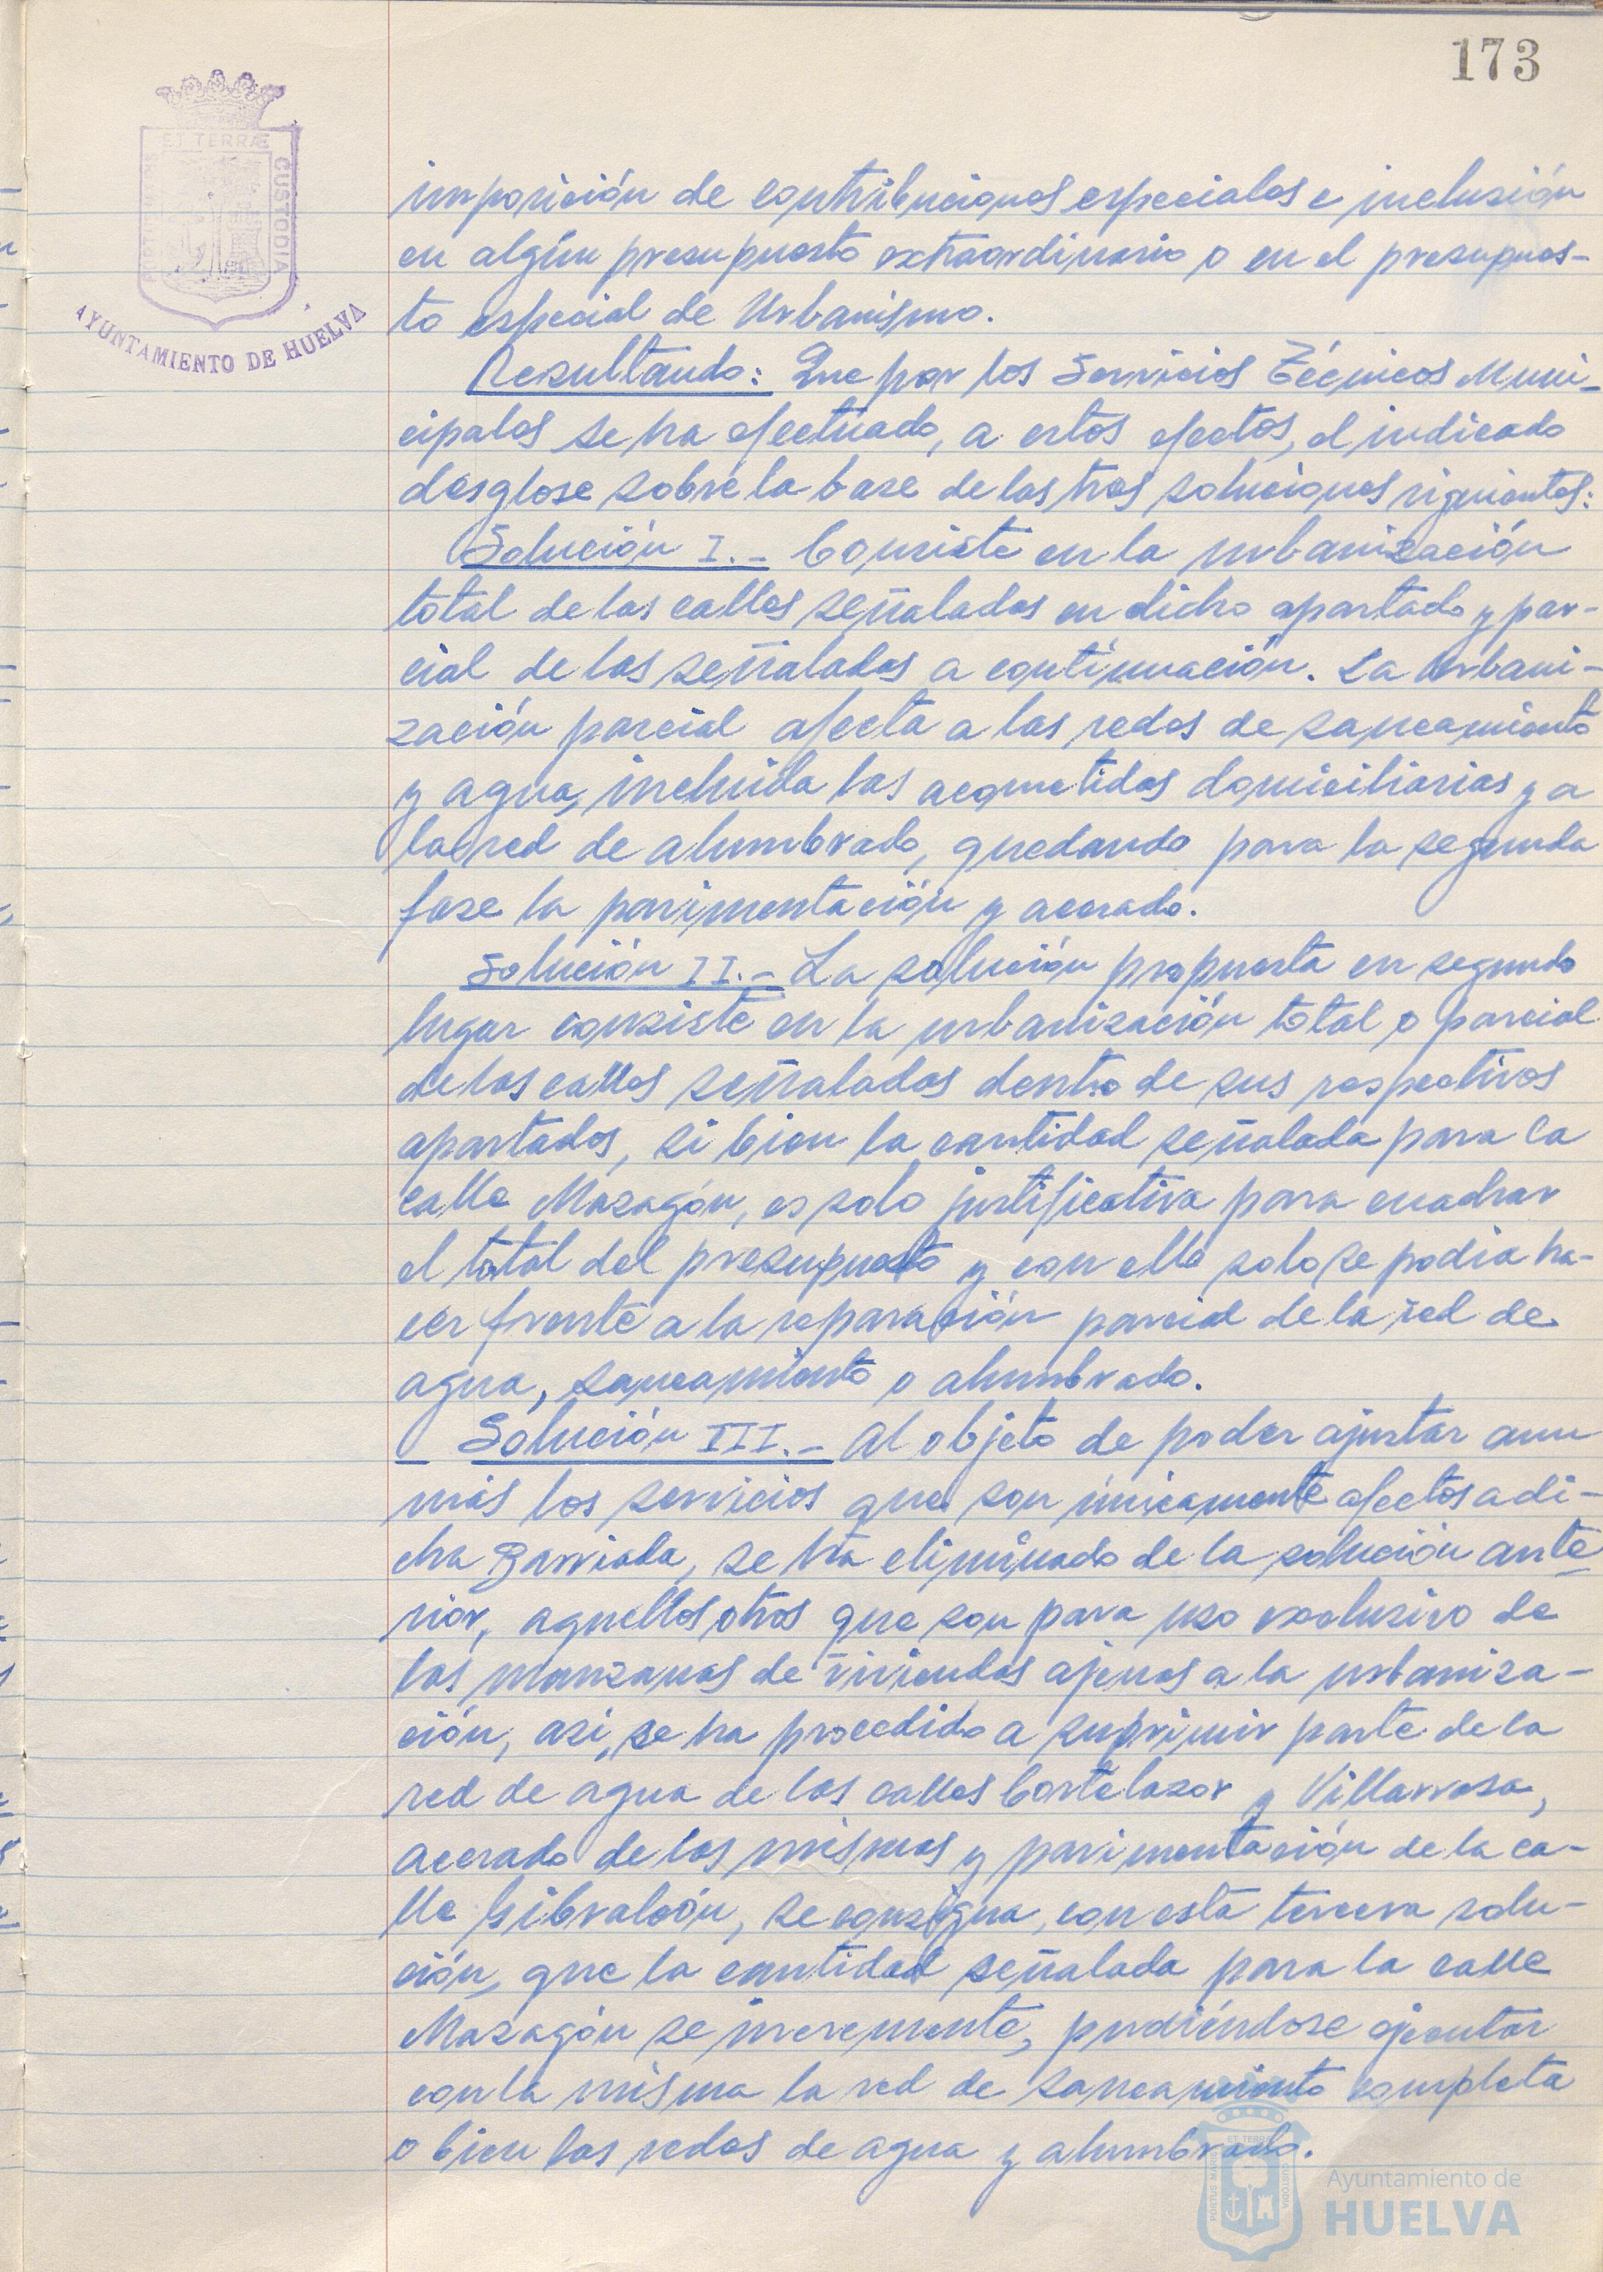 173
PORTUS MARIS
ET TERRÆ
CUSTODIA
AYUNTAMIENTO DE HUELVA
imposición de contribuciones especiales e inclusión
en algún presupuesto extraordinario o en el presupues-
to especial de Urbanismo.
Resultando: Que por los Servicios Técnicos Muni-
cipales se ha efectuado, a estos efectos, el indicado
desglose sobre la base de las tres soluciones siguientes:
Solución I.- Consiste en la urbanización
total de las calles señaladas en dicho apartado y par-
cial de las señaladas a continuación. La Urbani-
zación parcial afecta a las redes de saneamiento
y agua, incluida las acometidas domiciliarias y a
la red de alumbrado, quedando para la segunda
fase la pavimentación y acerado.
Solución II.- La solución propuesta en segundo
lugar consiste en la urbanización total o parcial
de las calles señaladas dentro de sus respectivos
apartados, si bien la cantidad señalada para la
calle Mazagón, es solo justificativa para cuadrar
el total del presupuesto y con ella solo se podia ha-
cer frente a la reparación parcial de la red de
agua, saneamiento o alumbrado.
Solución III.- Al objeto de poder ajustar aun
más los servicios que son únicamente afectos a di-
cha Barriada, se ha eliminado de la solución ante-
rior, aquellos otros que son para uso exclusivo de
las manzanas de viviendas ajenas a la urbaniza-
ción, asi, se ha procedido a suprimir parte de la
red de agua de las calles Cortelazor y Villarrasa,
acerado de las mismas y pavimentación de la ca-
lle Gibraleón, se consigna, con esta tercera solu-
ción, que la cantidad señalada para la calle
Mazagón se incremente, pudiéndose ejecutar
con la misma la red de saneamiento completa
o bien las redes de agua y alumbrado.
PORTUS MARIS
ET TERRÆ
CUSTODIA
Ayuntamiento de
HUELVA